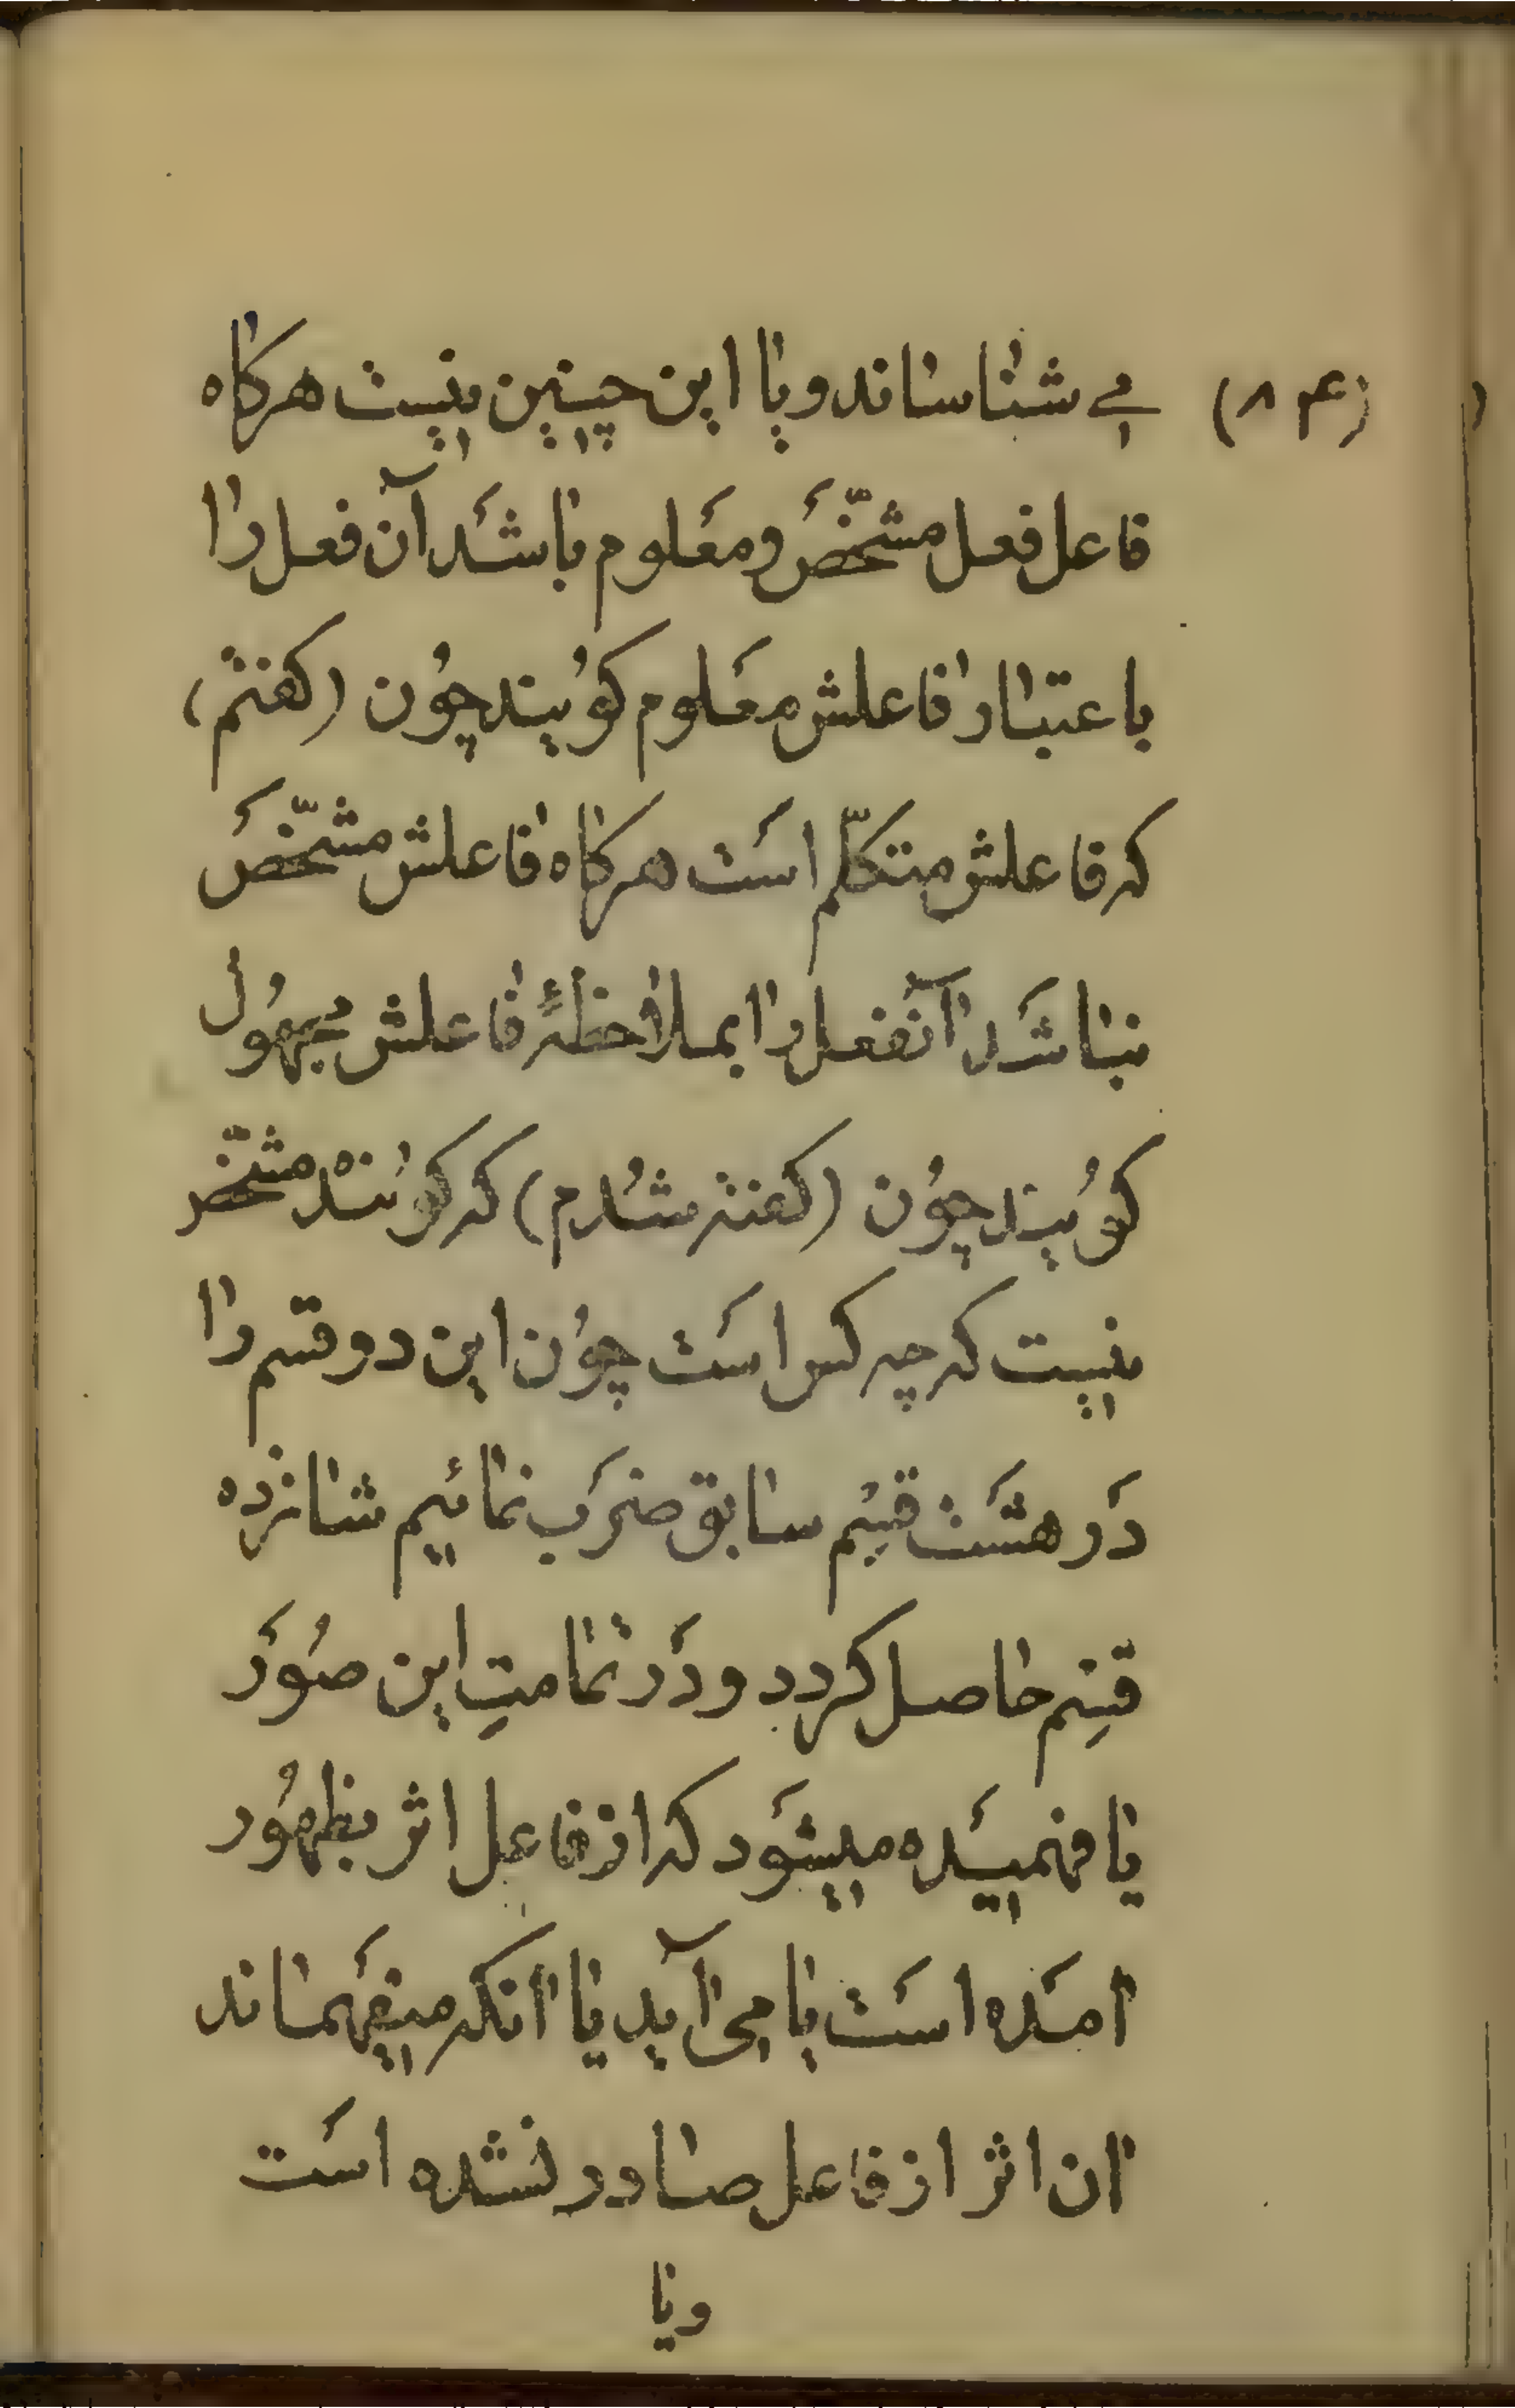 (۸۴) می شناساند و یا این چنین نیست هرکاه
فاعل فعل مشخّصَ و معَلوم باشَد آن فعل را
باعتبار فاعلش معَلوم کوُیند چوُن (کفتم)
که فاعلش متکلّم استَ هرکاه فاعلش مشخّصَ
نباشَد آنفعل را بملاحظهٔ فاعلش مجهُول
کوُیند چوُن (کفته شُدم) که کوُینْده مشخّص
نیست که چه کس استَ چوُن این دو قسم را
دَر هشَت قسِْم سابق ضرَب نمائیم شانزده
قسِم حاصل کردد و دَر تمامتِ این صُوَر
یا فهمیَده میشَود که از فاعل اثر بظهُور
امَده استَ یا می آید یا انکه میفهَماند
ان اثر از فاعل صادر نشده استَ
و یا